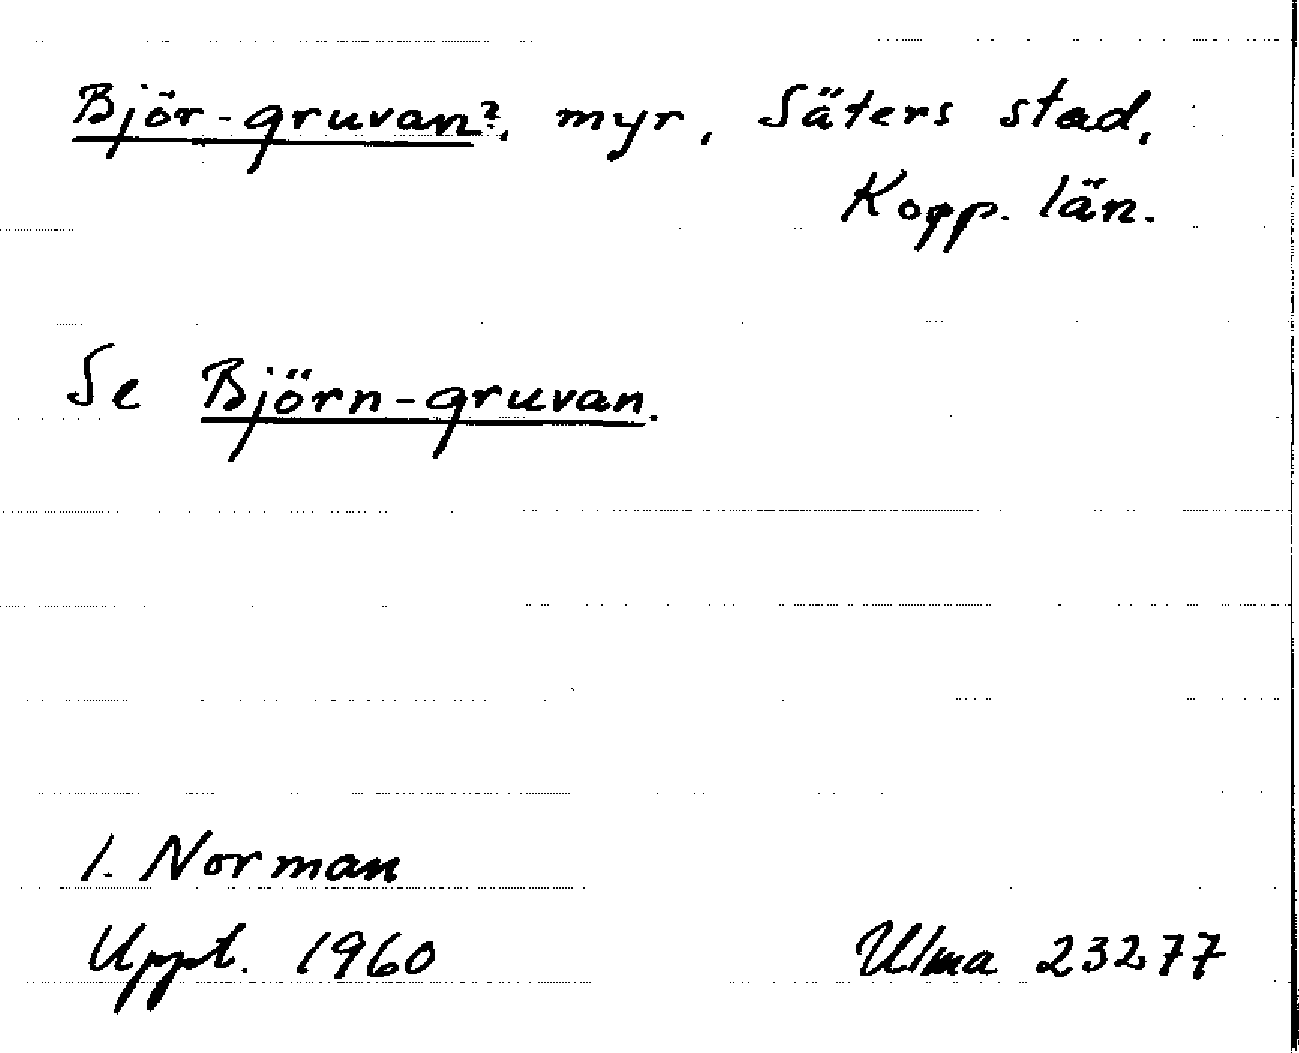 Björ-gruvan?, myr, Säters stad,
Kopp. län.
Se Björn-gruvan.
I. Norman
Uppt. 1960
Ulma 23277